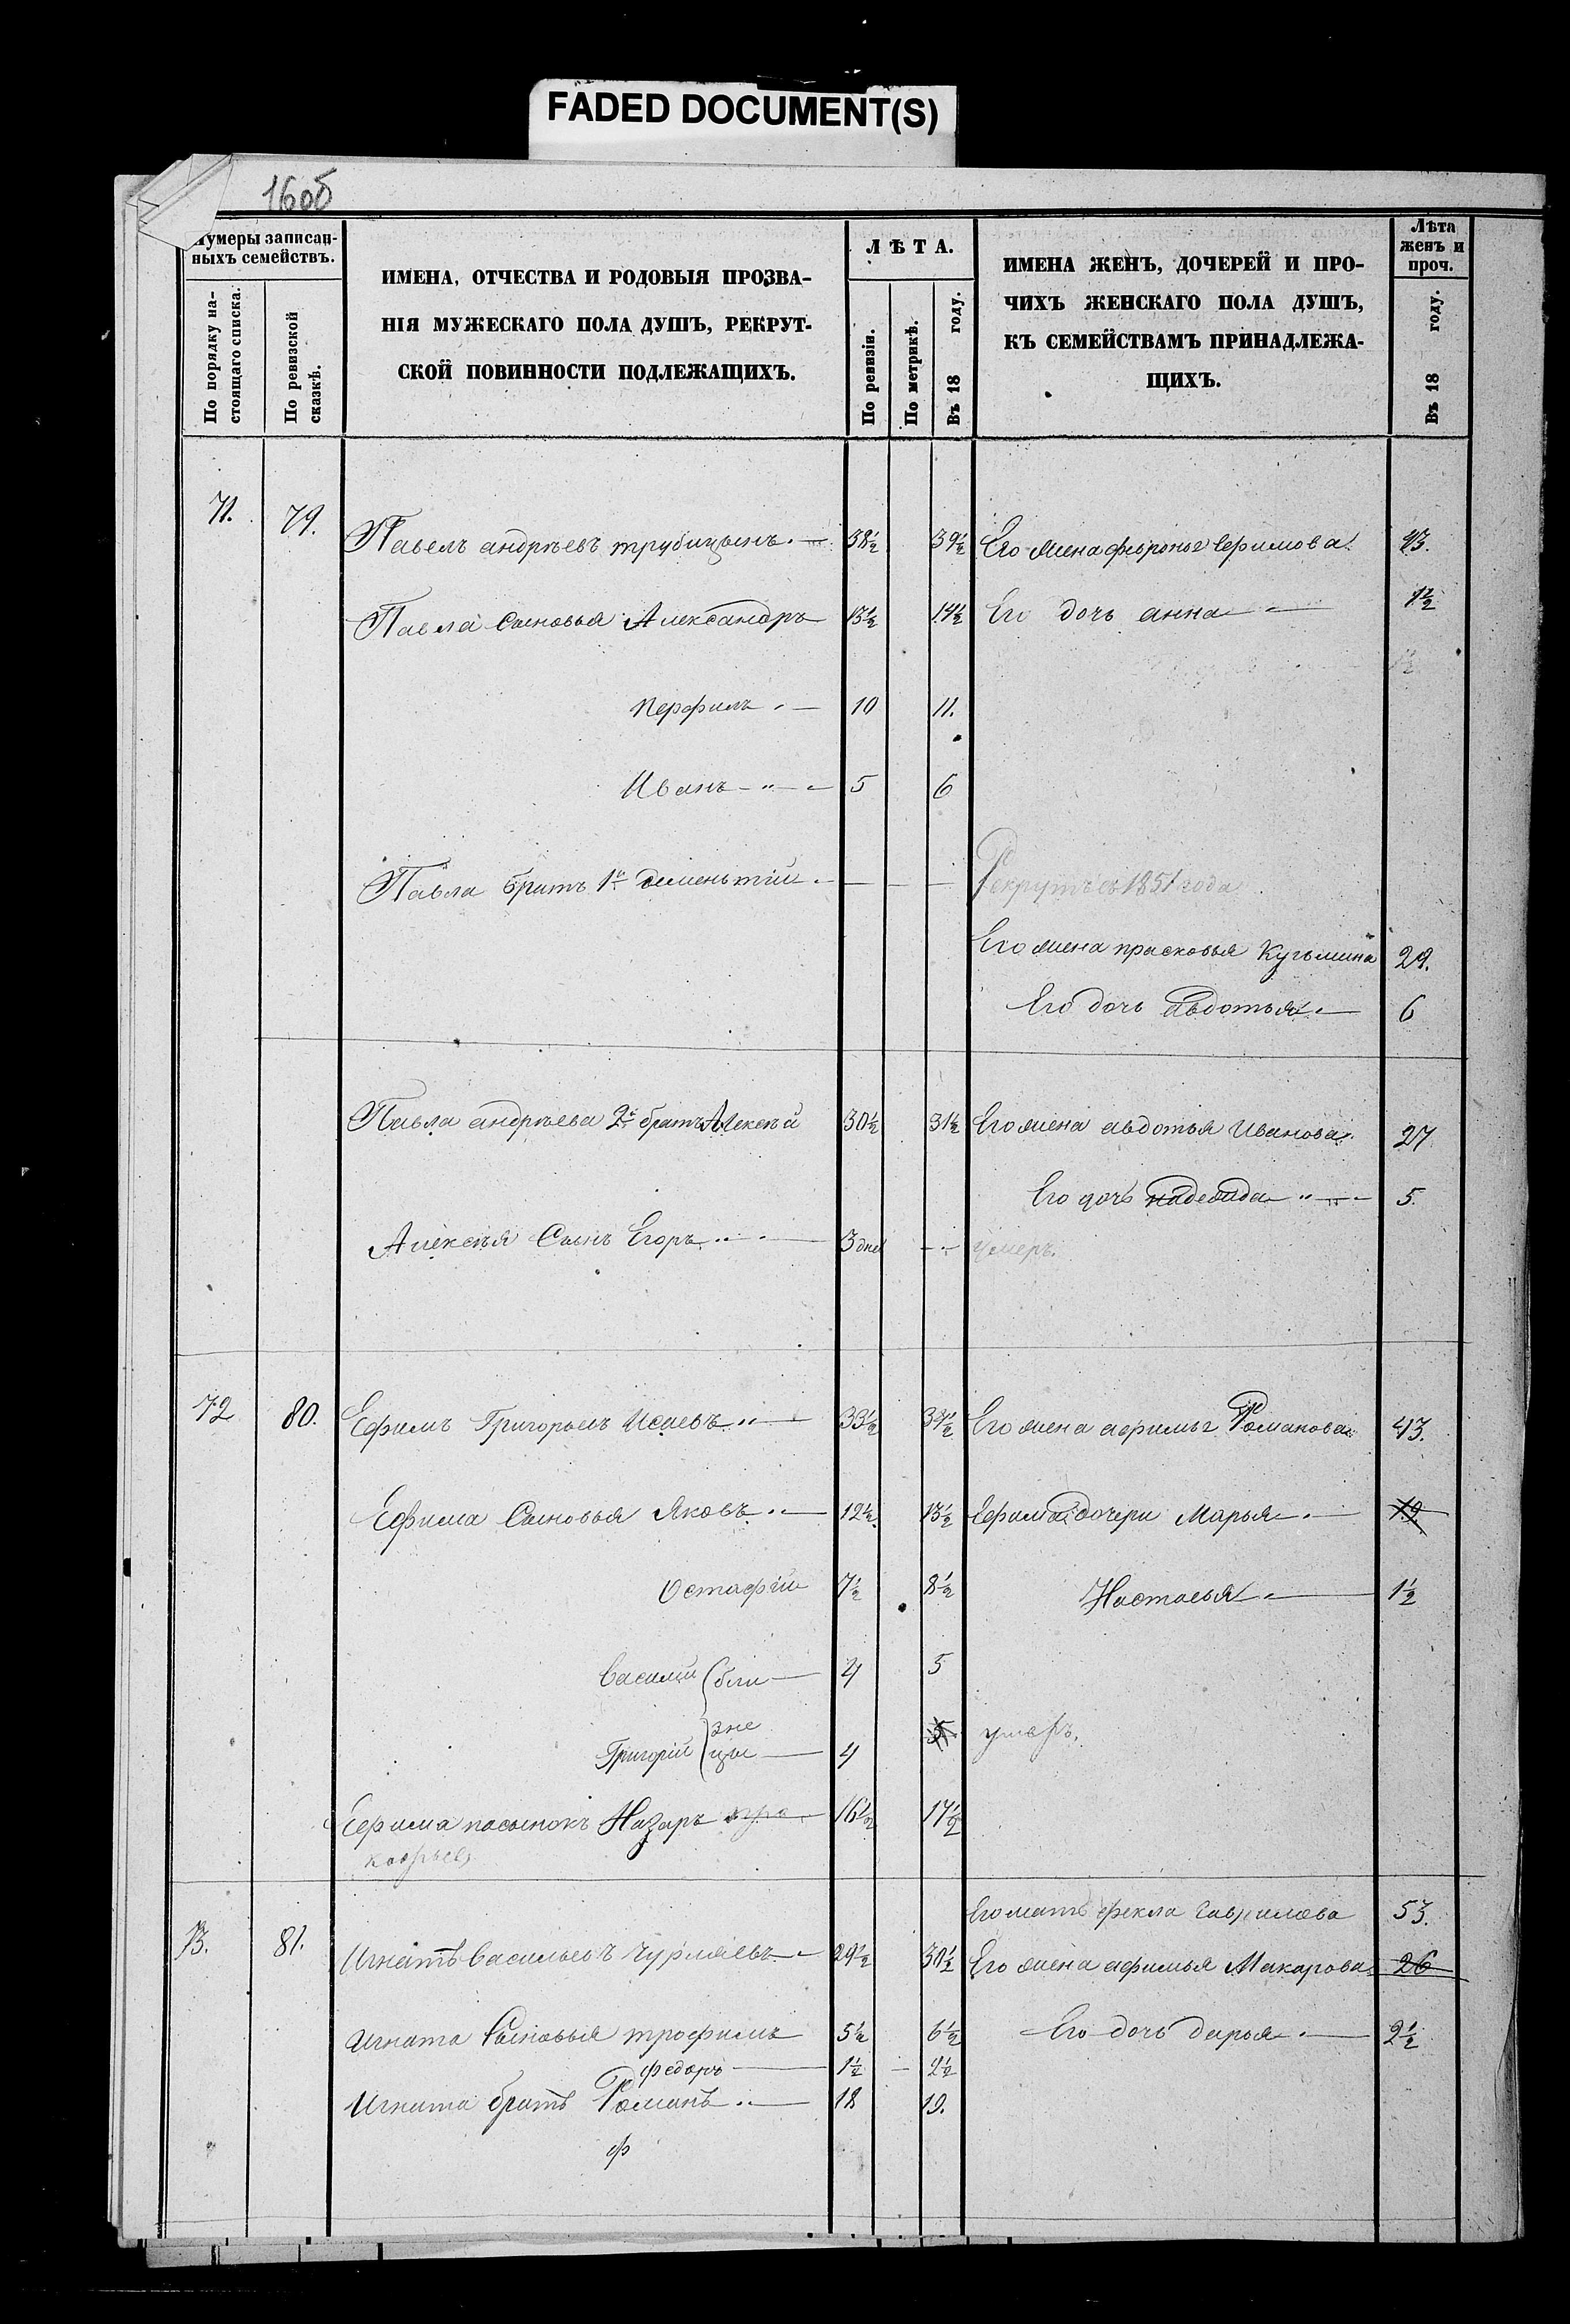 FADED DOCUMENT(S)
16об
Нумеры записан-
ныхъ семействъ.
По порядку на-
стоящаго списка.
По ревизской
сказкѣ.
ИМЕНА, ОТЧЕСТВА И РОДОВЫЯ ПРОЗВА-
НІЯ МУЖЕСКАГО ПОЛА ДУШЪ, РЕКРУТ-
СКОЙ ПОВИННОСТИ ПОДЛЕЖАЩИХЪ.
ЛѢТА.
По ревизіи.
По метрикѣ.
Въ 18 году.
ИМЕНА ЖЕНЪ, ДОЧЕРЕЙ И ПРО-
ЧИХЪ ЖЕНСКАГО ПОЛА ДУШЪ,
КЪ СЕМЕЙСТВАМЪ ПРИНАДЛЕЖА-
ЩИХЪ.
Лѣта
женъ и
проч.
Въ 18 году.
71. 79. Павелъ андрѣевъ трубицынъ. 38½ 39½ Его жена февронья Ефимова 43.
Павла Сыновья Александръ 13½ 14½ Его дочь анна 1½
1½
перфилъ 10 11.
Иванъ 5 6
Павла братъ 1й дементий Рекрутъ съ 1851 года
Его жена прасковья Кузьмина 29.
Его дочь Авдотья 6
Павла андрѣева 2й братъ Алексѣй 30½ 31½ Его жена авдотья Иванова 27
Его дочь надежда 5.
Алексѣя Сынъ Егоръ 3 дней умеръ.
72 80. Ефимъ Григорьевъ Исаевъ 33½ 34½ Его жена афимья Романова 43.
Ефима Сыновья Яковъ 12½. 13½ Ефима дочери Марья 19.
Остафій 7½ 8½ Настасья 1½
Василій (бли 4 5
Григорій зне
цы 4 5 умеръ.
Ефима пасынокъ Назаръ про 16½ 17½
кофьевъ
Его мать фекла Гаврилова 53.
73. 81. Игнатъ Васильевъ Чурляевъ 29½ 30½ Его жена афимья Макарова 26
Игната Сыновья трофимъ 5½ 6½ Его дочь дарья 2½
федоръ 1½ 2½
Игната братъ Романъ 18 19.
ф